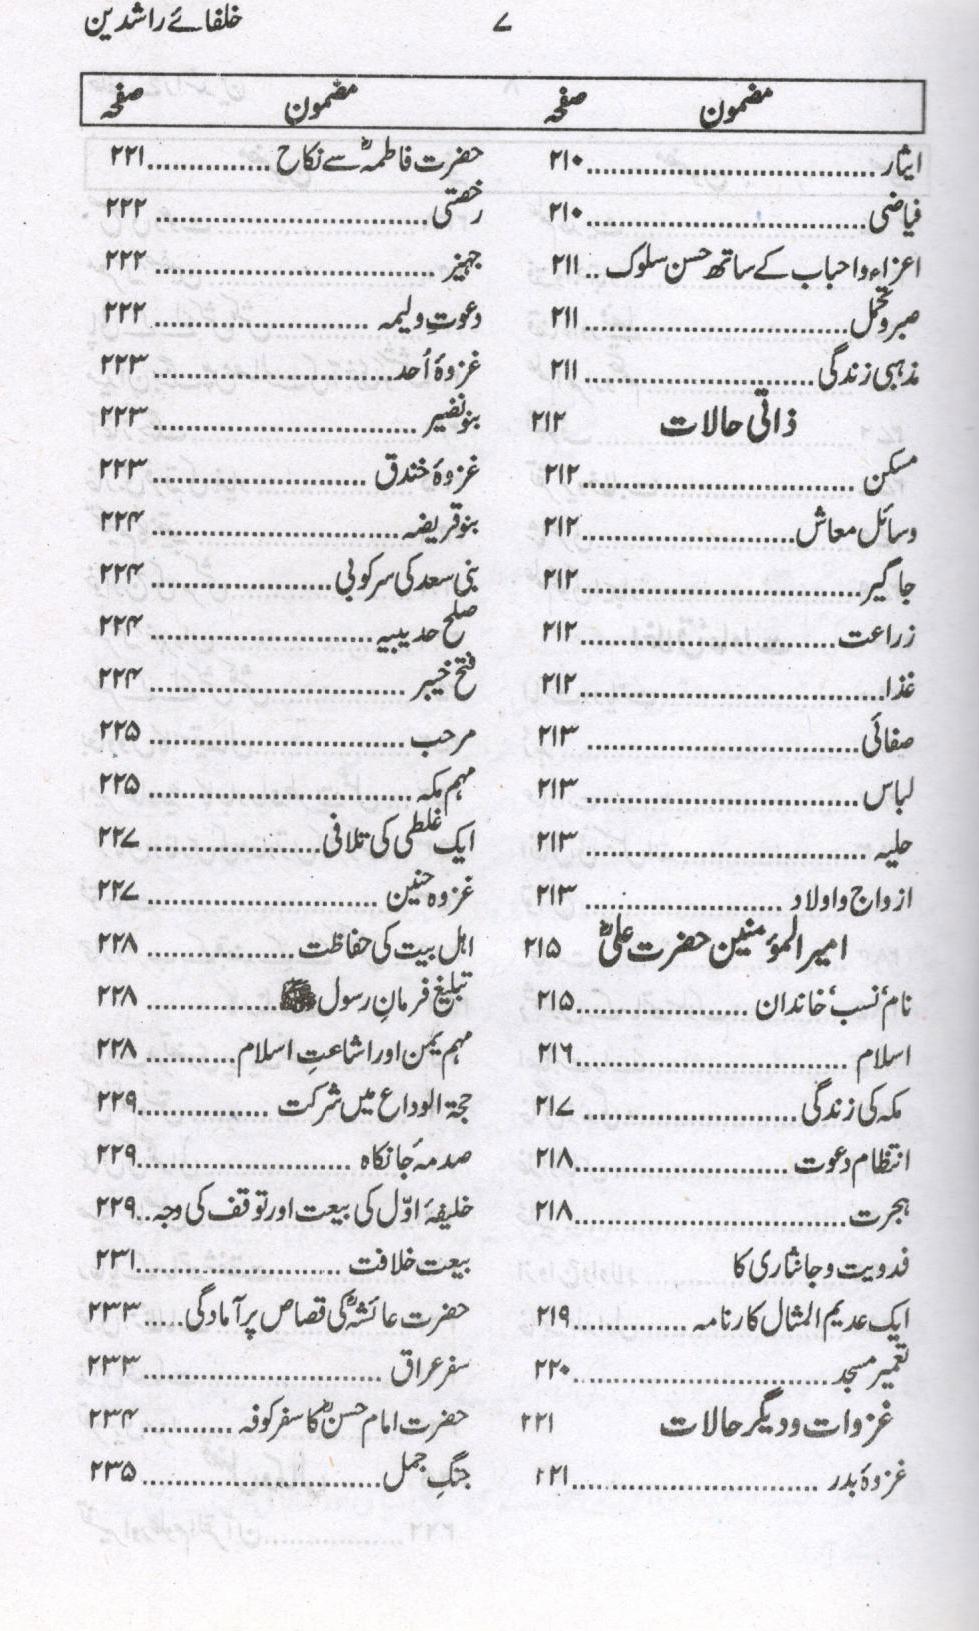 ۷ خلفائے راشدین
مضمون صفحہ مضمون صفحہ
ایثار ۲۱۰
فیاضی ۲۱۰
اعزاء و احباب کے ساتھ حسن سلوک ۲۱۱
صبر و تحمل ۲۱۱
مذہبی زندگی ۲۱۱
ذاتی حالات ۲۱۲
مسکن ۲۱۲
وسائل معاش ۲۱۲
جاگیر ۲۱۲
زراعت ۲۱۲
غذا ۲۱۲
صفائی ۲۱۳
لباس ۲۱۳
حلیہ ۲۱۳
ازواج و اولاد ۲۱۳
امیر المؤمنین حضرت علیؓ ۲۱۵
نام‘ نسب‘ خاندان ۲۱۵
اسلام ۲۱۶
مکہ کی زندگی ۲۱۷
انتظام دعوت ۲۱۸
ہجرت ۲۱۸
فدویت و جانثاری کا
ایک عدیم المثال کارنامہ ۲۱۹
تعمیر مسجد ۲۲۰
غزوات و دیگر حالات ۲۲۱
غزوۂ بدر ۲۲۱
حضرت فاطمہؓ سے نکاح ۲۲۱
رخصتی ۲۲۲
جہیز ۲۲۲
دعوتِ ولیمہ ۲۲۲
غزوۂ اُحد ۲۲۳
بنو نضیر ۲۲۳
غزوۂ خندق ۲۲۳
بنو قریضہ ۲۲۴
بنی سعد کی سرکوبی ۲۲۴
صلح حدیبیہ ۲۲۴
فتح خیبر ۲۲۴
مرحب ۲۲۵
مہم مکہ ۲۲۵
ایک غلطی کی تلافی ۲۲۷
غزوہ حنین ۲۲۷
اہل بیت کی حفاظت ۲۲۸
تبلیغ فرمانِ رسول ﷺ ۲۲۸
مہم یمن اور اشاعتِ اسلام ۲۲۸
حجۃ الوداع میں شرکت ۲۲۹
صدمہ جانکاہ ۲۲۹
خلیفہ اوّل کی بیعت اور توقف کی وجہ ۲۲۹
بیعت خلافت ۲۳۱
حضرت عائشہؓ کی قصاص پر آمادگی ۲۳۳
سفر عراق ۲۳۳
حضرت امام حسنؓ کا سفر کوفہ ۲۳۴
جنگِ جمل ۲۳۵